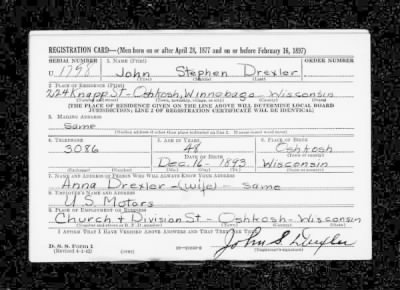 REGISTRATION CARD—(Men born on or after April 28, 1877 and on or before February 16, 1897)
SERIAL NUMBER 1. NAME (Print) ORDER NUMBER
U 1798 John Stephen Drexler
(First) (Middle) (Last)
2. PLACE OF RESIDENCE (Print)
224 Knapp St - Oshkosh, Winnebago - Wisconsin
(Number and street) (Town, township, village, or city) (County) (State)
[THE PLACE OF RESIDENCE GIVEN ON THE LINE ABOVE WILL DETERMINE LOCAL BOARD
JURISDICTION; LINE 2 OF REGISTRATION CERTIFICATE WILL BE IDENTICAL]
3. MAILING ADDRESS
Same
[Mailing address if other than place indicated on line 2. If same insert word same]
4. TELEPHONE 5. AGE IN YEARS 6. PLACE OF BIRTH
3086 48 Oshkosh
DATE OF BIRTH (Town or county)
Dec. 16 - 1893 Wisconsin
(Exchange) (Number) (Mo.) (Day) (Yr.) (State or country)
7. NAME AND ADDRESS OF PERSON WHO WILL ALWAYS KNOW YOUR ADDRESS
Anna Drexler - (wife) - same
8. EMPLOYER'S NAME AND ADDRESS
U.S. Motors
9. PLACE OF EMPLOYMENT OR BUSINESS
Church & Division St - Oshkosh - Wisconsin
(Number and street or R. F. D. number) (Town) (County) (State)
I AFFIRM THAT I HAVE VERIFIED ABOVE ANSWERS AND THAT THEY ARE TRUE.
D. S. S. Form 1
(Revised 4-1-42) John S. Drexler
(Registrant's signature)